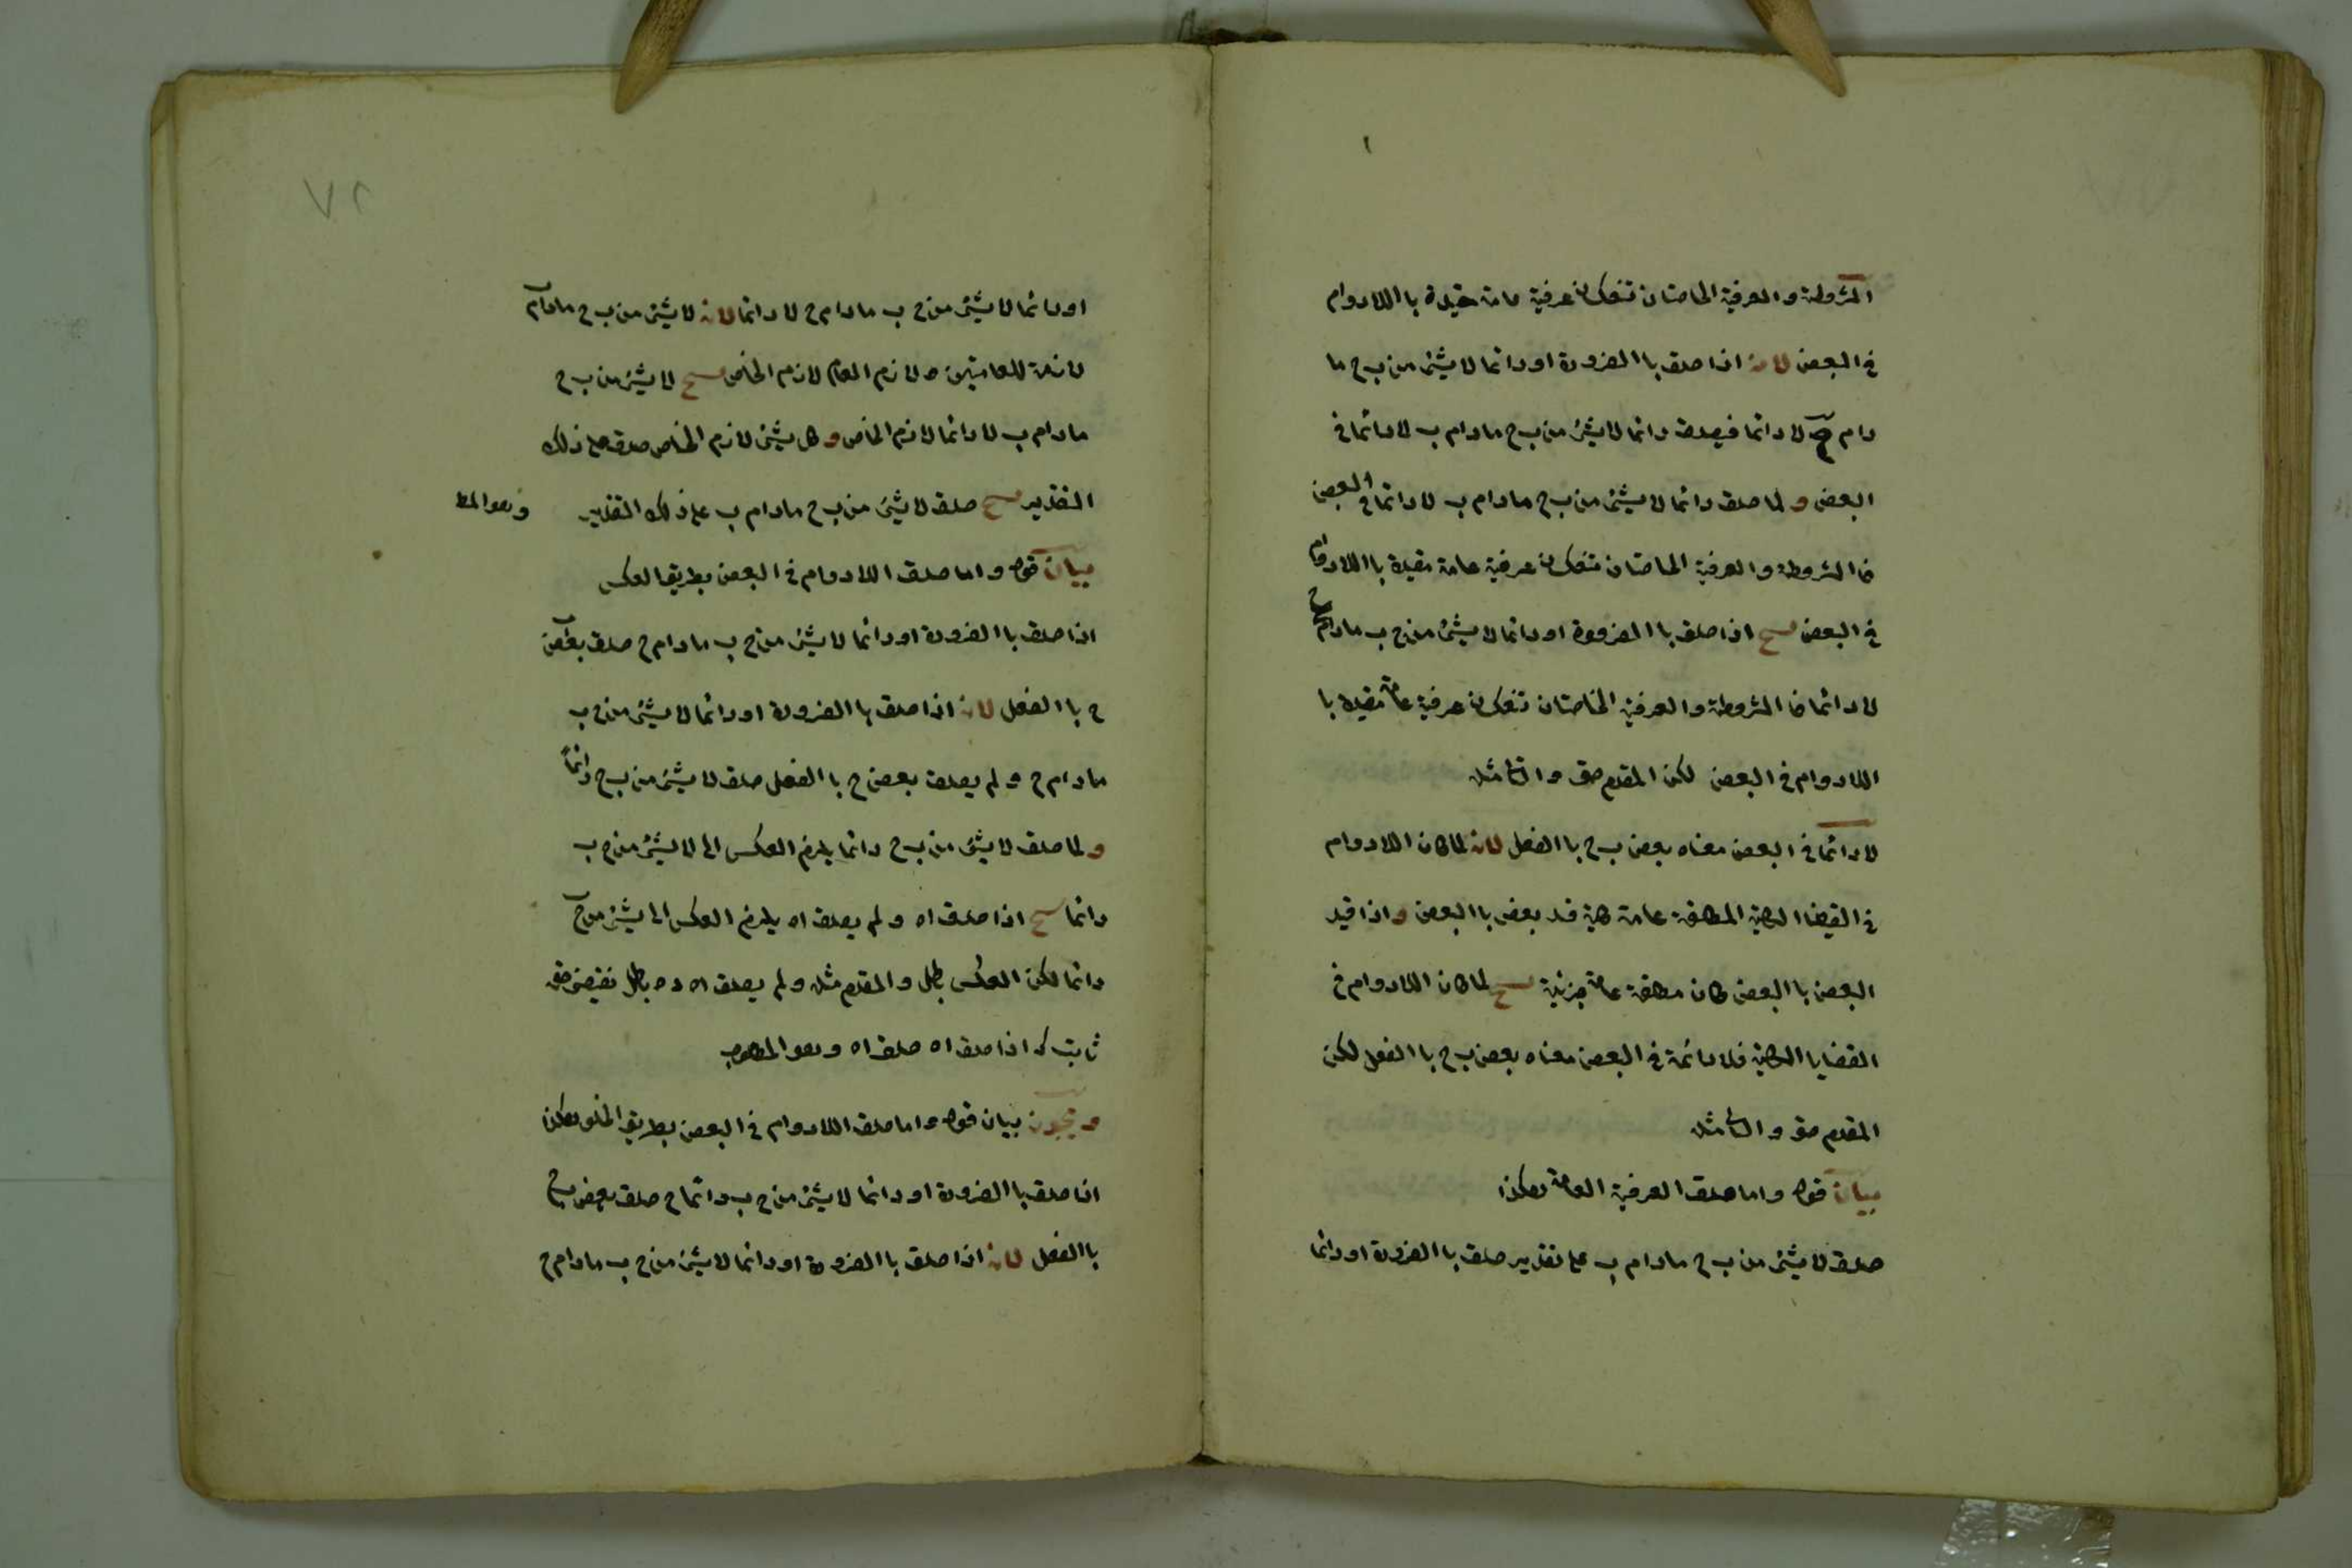 المشروطة والعرفية الخاصتان تنعكسان عرفية عامة مقيدة با اللادوام
في البعض لانه اذا صدق با الضرورة او دائما لا يشئ من ب ج ما
دام ج لا دائما فيصدق دائما لا يشئ من ب ج مادام ب لا دائما في
البعض و لما صدق دائما لا يشئ من ب ج مادام ب لا دائما في البعض
فا المشروطة والعرفية الخاصتان تنعكسان عرفية عامة مقيدة با اللادوام
في البعض اذا صدق با الضرورة او دائما لا يشئ من ج ب مادام ج
لا دائما فا المشروطة والعرفية الخاصتان تنعكسان عرفية عامة مقيدة با
اللادوام في البعض لكن المقدم حق والتا مثله
لا دائما في البعض معناه بعض ب ج با الفعل لانه لما كان اللادوام
في القيضا الكلية المطلقة عامة كلية قيد بعض با البعض و اذا قيد
البعض با البعض كان مطلقة عامة جزئية لما كان اللادوام في
القضايا الكلية فلا دائمة في البعض معناه بعض ب ج با الفعل لكن
المقدم حق والتا مثله
بيان قوله واما صدق العرفية العامة هكذا
صدق لا يشئ من ب ج مادام ب على تقدير صدق با الضرورة او دائما
٧٢
او دائما لا يشئ من ج ب مادام ج لا دائما لانه لا يشئ من ب ج مادام
لازمة للعامتين و لازم العام لازم الخاص لا يشئ من ب ج
مادام ب لا دائما لازم الخاص و كل يشئ لازم الخاص صدق على ذلك
التقدير صدق لا يشئ من ب ج مادام ب على ذلك التقدير وهو المط
بيان قوله واما صدق اللادوام في البعض بطريق العكس
اذا صدق با الضرورة او دائما لا يشئ من ج ب مادام ج صدق بعض
ج با الفعل لانه اذا صدق با الضرورة او دائما لا يشئ من ج ب
مادام ج و لم يصدق بعض ج با الفعل صدق لا يشئ من ب ج دائماً
و لما صدق لا يشئ من ب ج دائما يلزم العكس الى لا يشئ من ج ب
دائما اذا صدق اه و لم يصدق اه يلزم العكس الى يشئ من ج
دائما لكن العكس بطل والمقدم مثله و لم يصدق اه بطل نقيضه حق
ثابت اذا صدق اه صدق اه وهو المطلوب
ويجوز بيان قوله واما صدق اللادوام في البعض بطريق الخلو هكذا
اذا صدق با الضرورة او دائما لا يشئ من ج ب دائما ج صدق بعض ب ج
با الفعل لانه اذا صدق با الضرورة او دائما لا يشئ من ج ب مادام ج